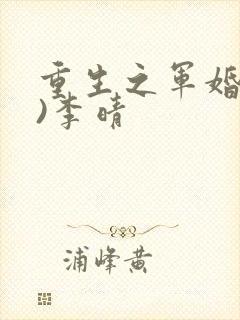 重生之军婚
)李晴
浦峰黄